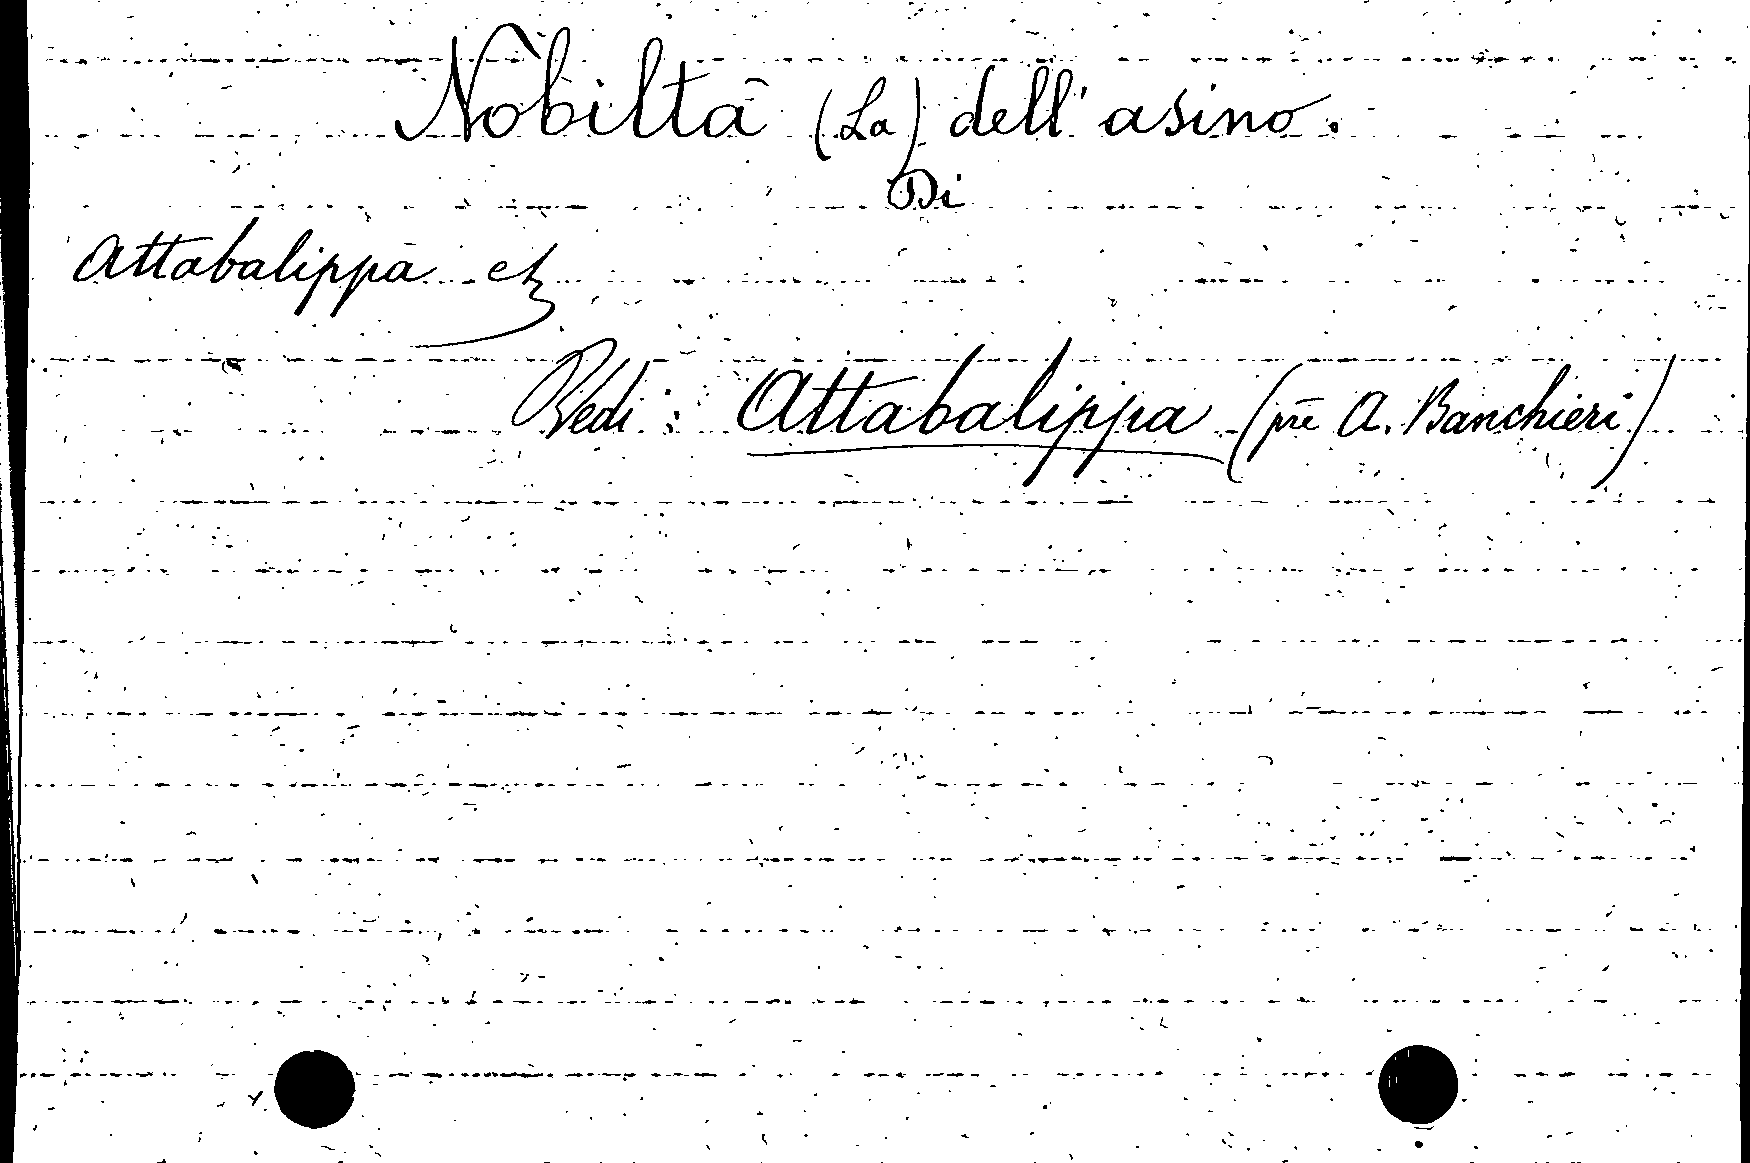 Nobiltà (La) dell'asino.
Di
Attabalippa etc
Vedi: Attabalippa (prè A. Banchieri)